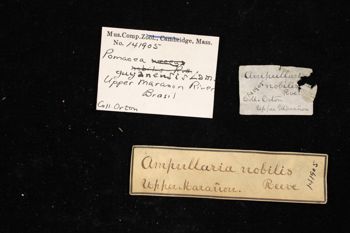 Mus. Comp. Zool., Cambridge, Mass.
No. 141905
Pomacea
nobilis Rve
guyanensis Lam.
Upper Maranon River
Brasil
Coll. Orton
Ampullaria
nobilis
Reeve
Coll. Orton
Upper Marañon
Ampullaria nobilis
Upper Marañon. Reeve
141905